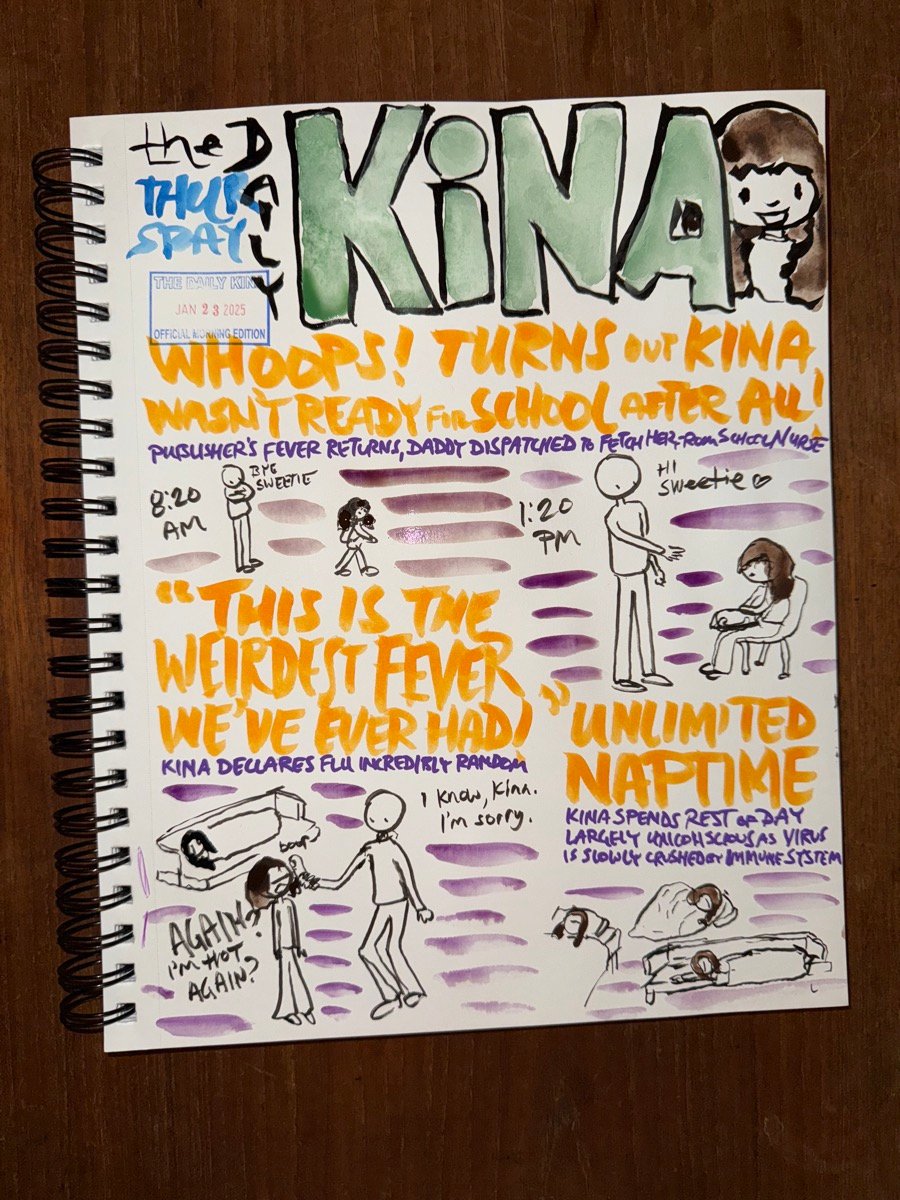 the DAILY
KiNA
THURSDAY
THE DAILY KINA
JAN 23 2025
OFFICIAL MORNING EDITION
WHOOPS! TURNS OUT KINA
WASN'T READY FOR SCHOOL AFTER ALL!
PUBLISHER'S FEVER RETURNS, DADDY DISPATCHED to FETCH HER FROM SCHOOL NURSE
8:20
AM
BYE
SWEETIE
1:20
PM
Hi
Sweetie ♡
"THIS IS THE
WEIRDEST FEVER
WE'VE EVER HAD!"
KINA DECLARES FLU INCREDIBLY RANDOM
I know, Kina.
I'm sorry.
AGAIN?
I'M HOT
AGAIN?
UNLIMITED
NAPTIME
KINA SPENDS REST OF DAY
LARGELY UNCONSCIOUS AS VIRUS
IS SLOWLY CRUSHED BY IMMUNE SYSTEM